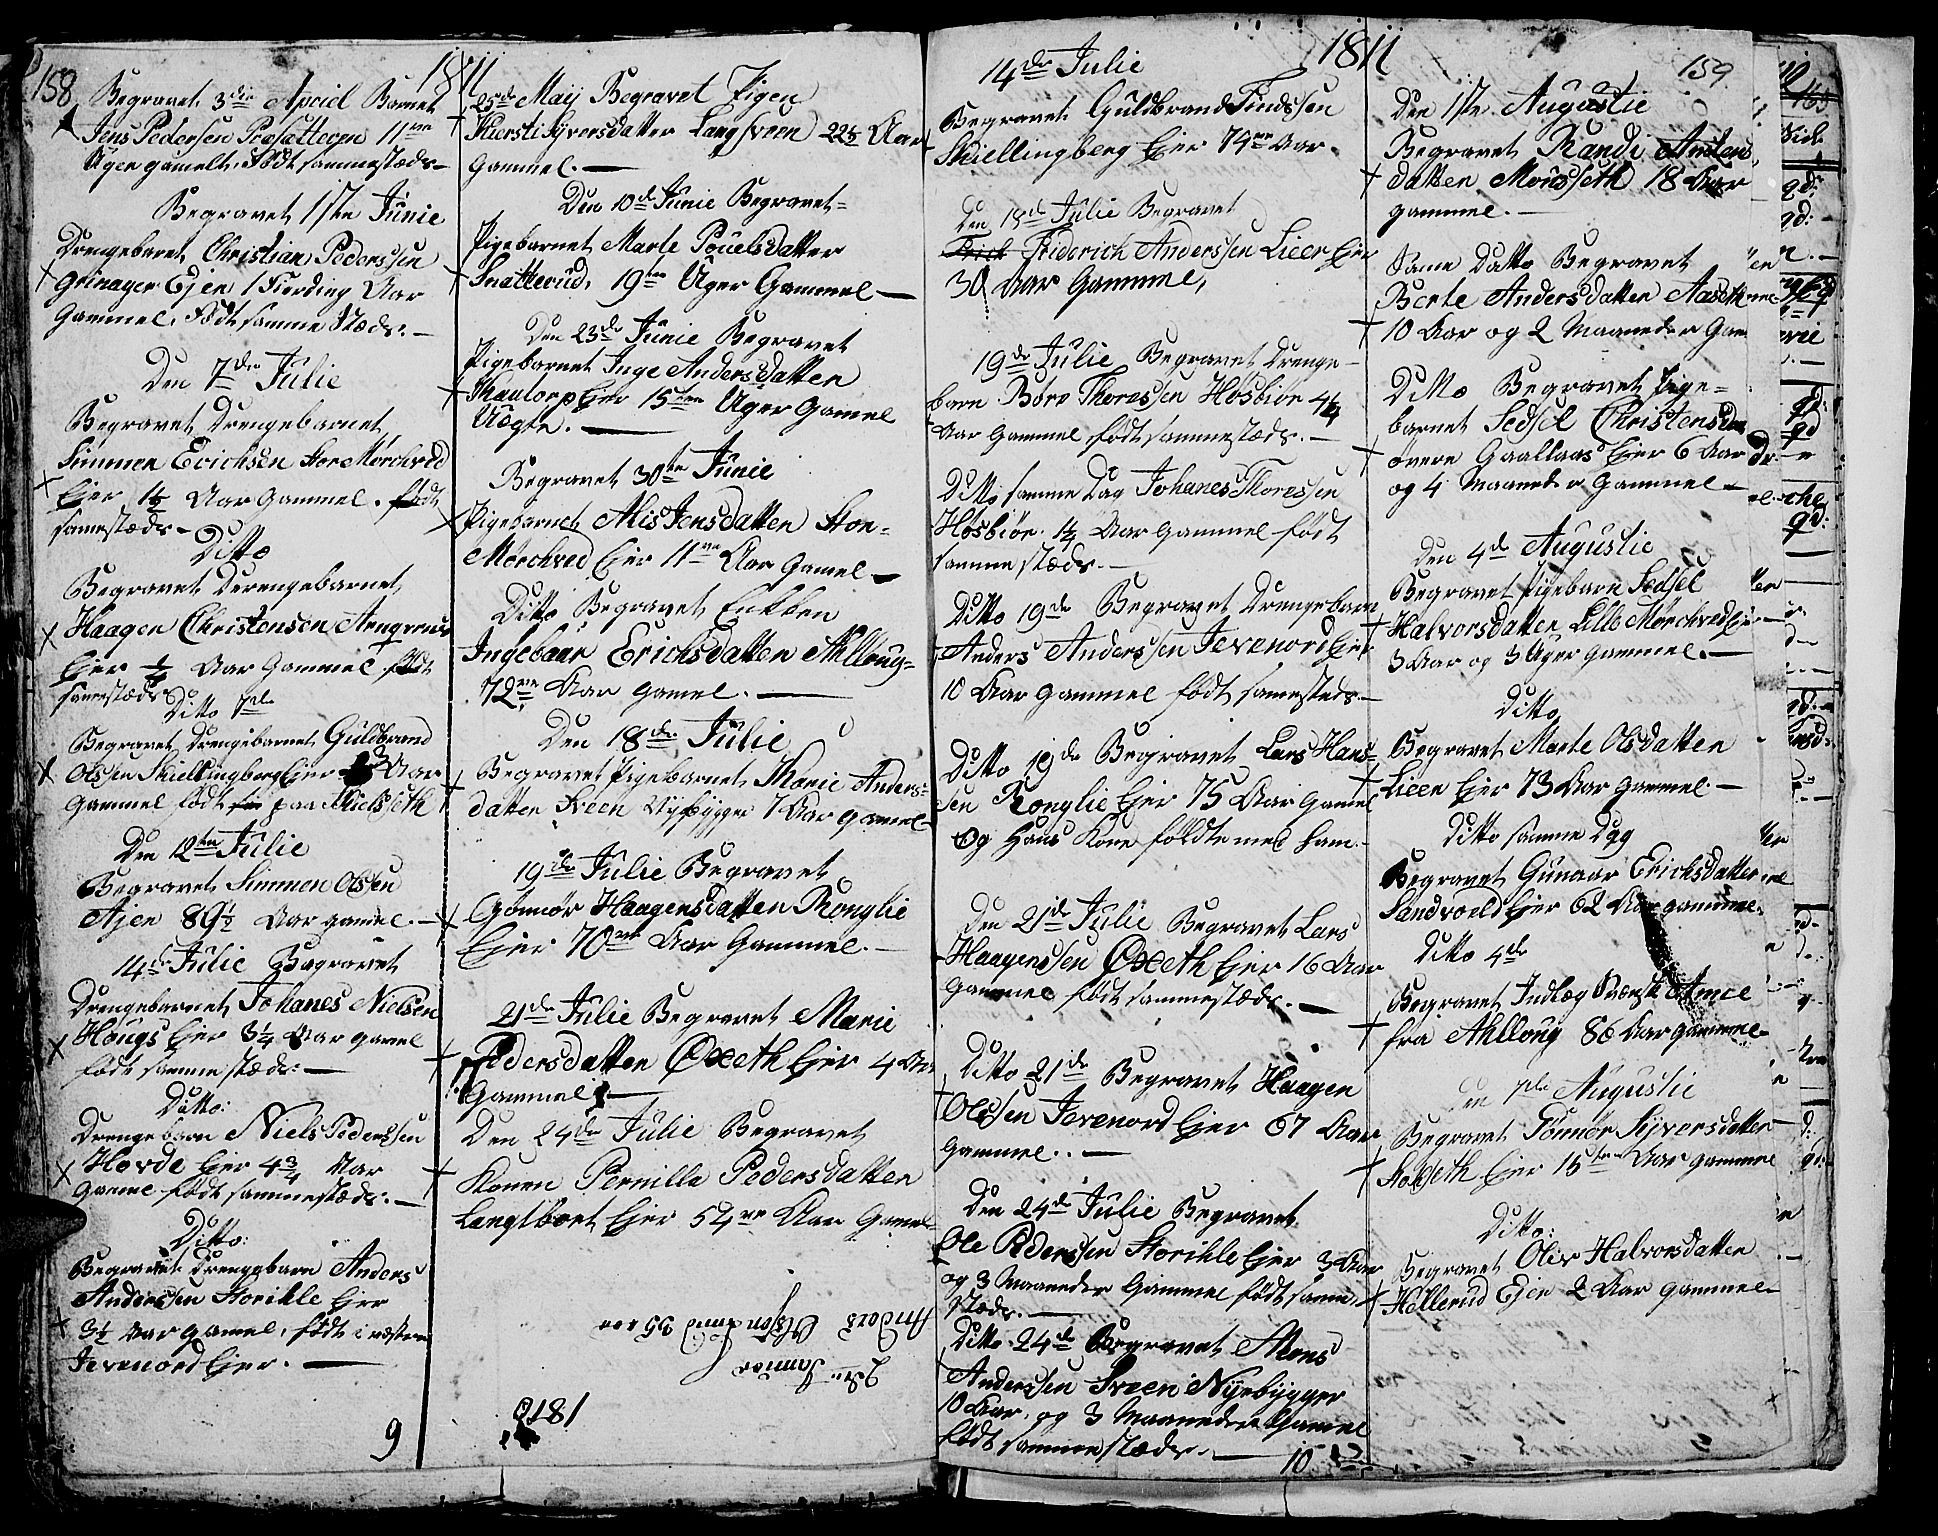 158
1811
Begravet 3die Apriel Barnet
Jens Pedersen Præsatteren 11ve
Uger gamelt. Født sammestæds
Begravet 1ste Junie
Drengebarnet Christian Pederssen
Grinager Ejen 1 Fierding Aar
Gammel. Født samme Stæds.
Den 7de Julie
Begravet Drengebarnet
Simmen Erichsen Stor Mørchved
Ejer 1½ Aar Gammel. født
samestæds
Ditto
Begravet Derengebarnet
Haagen Christensen
Ejer ¼ Aar Gammel født
samestæds
Ditto 7de
Begravet Drengebarnet Guldbrand
Olssen Skiellingberg Ejer Aar
Gammel født paa Kielsseth
Den 12te Julie
Begravet Simmen Olssen
Ajen 89½ Aar gamel.
14de Julie Begravet
Drengebarnet Johanes Nielsen
Hougs Ejer 3¼ Aar gamel
født samme stæds.
Ditto:
Drengebarn Niels Pederssen
Hovde Ejer 4¾ Aar
Gamel født sammestæds.
Ditto:
Begravet Drengebarn Anders
Anderssen Storihle Ejer
3½ Aar gamel, født i
Jevenord Ejer.
9
25de Maij Begravet Pigen
Kiersti Syversdatter Langsveen 22½ Aar
Gammel.
Den 10de Junie Begravet
Pigebarnet Marte Pouelsdatter
Snatterud, 19ten Uger Gammel
Den 23de Junie Begravet
Pigebarnet Inge Andersdatten
Skautorp Ejer 15ten Uger Gamel
Begravet 30te Junie
Pigebarnet Alis Jensdatten Stor-
Mørchved Ejer 11ve Aar Gamel
Ditto Begravet Enkken
Ingebaar Erichsdatten Ahlloug
72ve Aar gamel.
Den 18de Julie
Begravet Pigebarnet Marie Anders-
datten Sveen Nyebygger 7 Aar gamel
19de Julie Begravet
Gønnør Haagensdatten Ronglie
Ejer 70ve Aar Gammel.
21de Julie Begravet Marie
Pedersdatten Oxeth Ejer 4 Aar
Gammel
Den 24de Julie Begravet
Konen Pernille Pedersdatten
Langlboet Ejer 54re Aar Gamel
Januar
Anders 35
0181
1811
14de Julie
Begravet Guldbrand Findssen
Skiellingberg Ejer 74re Aar.
Den 18de Julie Begravet
Friderich Anderssen Lieer Ejer
30 Aar Gammel,
19de Julie Begravet Drenge-
barn Børe Thoressen Høsbiør 4¼
Aar Gammel født sammestæds.
Ditto samme Dag Johanes Thoressen
Høsbiør 1¼ Aar Gammel født
samme stæds.
Ditto 19de Begravet Drengebarn
Anders Anderssen Jevenord Ejer
10 Aar Gammel født samesteds
Ditto 19de Begravet Lars Hans-
sen Ronglie Ejer 75 Aar Gamel
Og Hans Kone føldte med ham.
Den 21de Julie Begravet Lars
Haagenssen Oxeth Ejer 16 Aar
Gammel født sammestæds.
Ditto 21de Begravet Haagen
Olssen Jevenord Ejer 67 Aar
Gammel.
Den 24de Julie Begravet
Ole Pederssen Storihle Ejer 3 Aar
og 3 Maaneder Gammel født samme
stæds.
Ditto 24de Begravet Mons
Anderssen Sveen Nyebygger
10 Aar, og 3 Maaneder Gamel
født samme stæds.
10
159
Den 1ste Augustie
Begravet Randi Amten
datten Mousseth 18 Aar
gammel.
Same Datto Begravet
Berte Andersdatten Aaseth
10 Aar og 2 Maaneder Gam
Ditto Begravet Pige-
barnet Sedsel Christensda
øvere Gaallaas Ejer 6 Aar
og 4 Maaneder Gammel
Den 4de Augustie
Begravet Pigebarn Sedsel
Halvorsdatten Lille Mørchved Ejer
3 Aar og 3 Uger gammel.
Ditto
Begravet Marte Olsdatten
Lieen Ejer 73 Aar Gammel
Ditto samme Dag
Begravet Gunaar Erichsdatter
Sandvoeld Ejer 62 Aar gammel.
Ditto 4de
Begravet Indlæg Svænsk Amce
fra Ahlloug 86 Aar gammel
Den 7de Augustie
Begravet Tønnør Syversdatten
Stokseth Ejer 15ten Aar gammel
Ditto:
Begravet Olev Halvorsdatten
Hellerud Ejer 2 Aar gammel